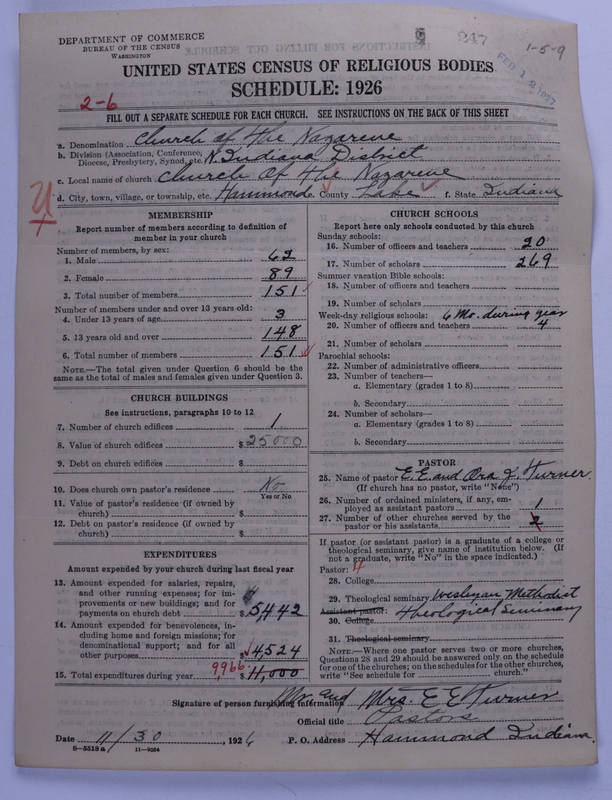 DEPARTMENT OF COMMERCE
BUREAU OF THE CENSUS
WASHINGTON
247
1-5-9
FEB 12 1927
UNITED STATES CENSUS OF RELIGIOUS BODIES
SCHEDULE: 1926
2-6
FILL OUT A SEPARATE SCHEDULE FOR EACH CHURCH. SEE INSTRUCTIONS ON THE BACK OF THIS SHEET
a. Denomination Church of the Nazarene
b. Division (Association, Conference, Diocese, Presbytery, Synod, etc. N. Indiana District
c. Local name of church Church Of the Nazarene
d. City, town, village, or township, etc. Hammond e. County Lake f. State Indiana
U
MEMBERSHIP
Report number of members according to definition of
member in your church
Number of members, by sex:
1. Male 62
2. Female 89
3. Total number of members 151
Number of members under and over 13 years old:
4. Under 13 years of age 3
5. 13 years old and over 148
6. Total number of members 151
NOTE.—The total given under Question 6 should be
same as the total of males and females given under Question 3.
CHURCH BUILDINGS
See instructions, paragraphs 10 to 12
7. Number of church edifices 1
8. Value of church edifices $ 25000
9. Debt on church edifices $
10. Does church own pastor's residence No
Yes or No
11. Value of pastor's residence (if owned by
church) $
12. Debt on pastor's residence (if owned by
church) $
EXPENDITURES
Amount expended by your church during last fiscal year
13. Amount expended for salaries, repairs,
and other running expenses; for im-
provements or new buildings; and for
payments on church debt $ 5442
14. Amount expended for benevolences, in-
cluding home and foreign missions; for
denominational support; and for all
other purposes $ 4,524
15. Total expenditures during year 9966 $ 11,000
CHURCH SCHOOLS
Report here only schools conducted by this church
Sunday schools:
16. Number of officers and teachers 20
17. Number of scholars 269
Summer vacation Bible schools:
18. Number of officers and teachers
19. Number of scholars
Week-day religious schools: 6 Mo. during year
20. Number of officers and teachers 4
21. Number of scholars
Parochial schools:
22. Number of administrative officers
23. Number of teachers—
a. Elementary (grades 1 to 8)
b. Secondary
24. Number of scholars—
a. Elementary (grades 1 to 8)
b. Secondary
PASTOR
25. Name of pastor E.E. and Ora K. Turner
(If church has no pastor, write "None")
26. Number of ordained ministers, if any, em-
ployed as assistant pastors 1
27. Number of other churches served by the
pastor or his assistants 2
If pastor (or assistant pastor) is a graduate of a college or
theological seminary, give name of institution below. (If
not a graduate, write "No" in the space indicated.)
Pastor: 4
28. College
29. Theological seminary Wesleyan Methodist
Assistant pastor: Theological Seminary
30. College
31. Theological seminary
NOTE.—Where one pastor serves two or more churches,
Questions 28 and 29 should be answered only on the schedule
for one of the churches; on the schedules for the other churches,
write "See schedule for church."
Signature of person furnishing information Mr. and Mrs. E E Turner
Official title Pastors
Date 11/30, 1926 P. O. Address Hammond Indiana.
6-5518a 11-9024